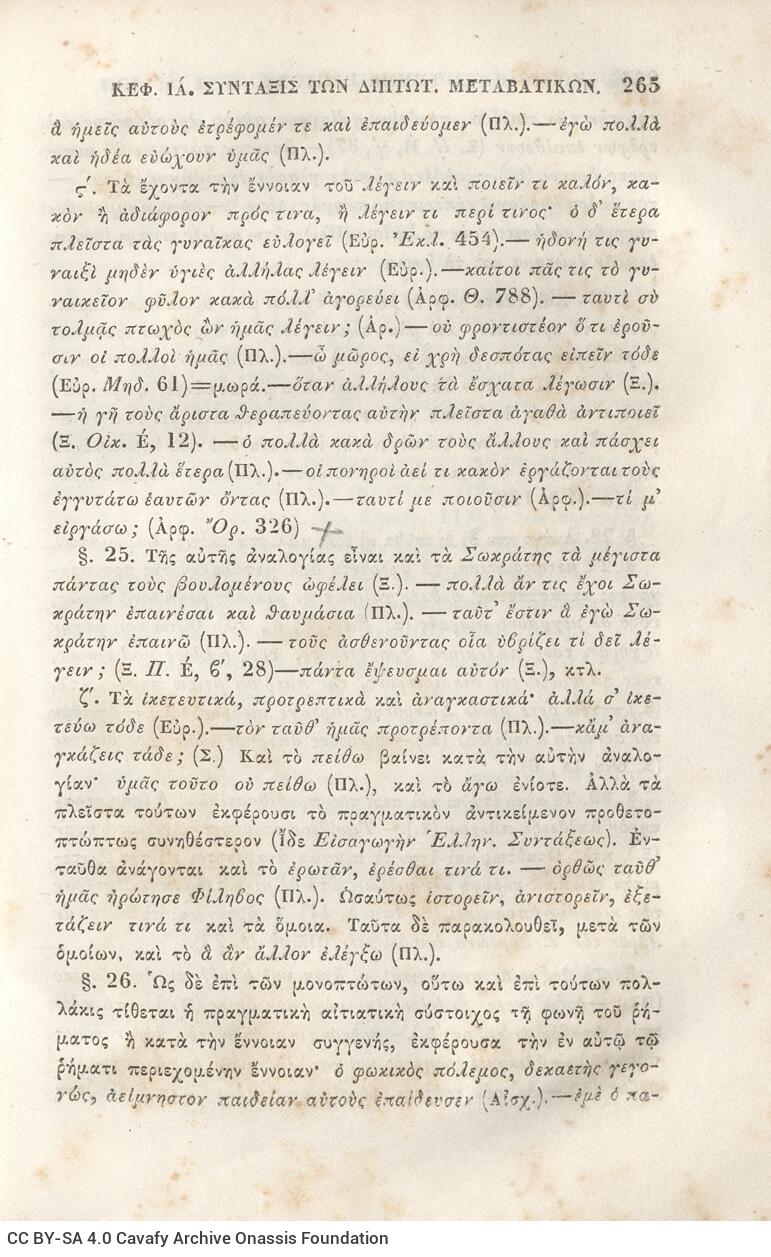 ΚΕΦ. ΙΑ. ΣΥΝΤΑΞΙΣ ΤΩΝ ΔΙΠΤΩΤ. ΜΕΤΑΒΑΤΙΚΩΝ. 265
ἃ ἡμεῖς αὐτοὺς ἐτρέφομέν τε καὶ ἐπαιδεύομεν (Πλ.).—ἐγὼ πολλὰ
καὶ ἡδέα εὐώχουν ὑμᾶς (Πλ.).
ϛ΄. Τὰ ἔχοντα τὴν ἔννοιαν τοῦ λέγειν καὶ ποιεῖν τι καλόν, κα-
κὸν ἢ ἀδιάφορον πρός τινα, ἢ λέγειν τι περί τινος· ὁ δ' ἕτερα
πλεῖστα τὰς γυναῖκας εὐλογεῖ (Εὐρ. Ἐκλ. 454).— ἡδονή τις γυ-
ναιξὶ μηδὲν ὑγιὲς ἀλλήλας λέγειν (Εὐρ.).—καίτοι πᾶς τις τὸ γυ-
ναικεῖον φῦλον κακὰ πόλλ' ἀγορεύει (Ἀρφ. Θ. 788). — ταυτὶ σὺ
τολμᾷς πτωχὸς ὢν ἡμᾶς λέγειν; (Ἀρ.)— οὐ φροντιστέον ὅ τι ἐροῦ-
σιν οἱ πολλοὶ ἡμᾶς (Πλ.).—ὦ μῶρος, εἰ χρὴ δεσπότας εἰπεῖν τόδε
(Εὐρ. Μηδ. 61)=μωρά.—ὅταν ἀλλήλους τὰ ἔσχατα λέγωσιν (Ξ.).
—ἡ γῆ τοὺς ἄριστα θεραπεύοντας αὐτὴν πλεῖστα ἀγαθὰ ἀντιποιεῖ
(Ξ. Οἰκ. Έ, 12). —ὁ πολλὰ κακὰ δρῶν τοὺς ἄλλους καὶ πάσχει
αὐτὸς πολλὰ ἕτερα (Πλ.).—οἱ πονηροὶ ἀεί τι κακὸν ἐργάζονται τοὺς
ἐγγυτάτω ἑαυτῶν ὄντας (Πλ.).—ταυτί με ποιοῦσιν (Ἀρφ.).—τί μ'
εἰργάσω; (Ἀρφ. Ὄρ. 326)
§. 25. Τῆς αὐτῆς ἀναλογίας εἶναι καὶ τὰ Σωκράτης τὰ μέγιστα
πάντας τοὺς βουλομένους ὠφέλει (Ξ.). — πολλὰ ἄν τις ἔχοι Σω-
κράτην ἐπαινέσαι καὶ θαυμάσια (Πλ.). — ταῦτ' ἔστιν ἃ ἐγὼ Σω-
κράτην ἐπαινῶ (Πλ.). —τοὺς ἀσθενοῦντας οἷα ὑβρίζει τί δεῖ λέ-
γειν; (Ξ. Π. Έ, ϐ΄, 28)—πάντα ἔψευσμαι αὐτόν (Ξ.), κτλ.
ζ΄. Τὰ ἱκετευτικά, προτρεπτικὰ καὶ ἀναγκαστικά· ἀλλά σ' ἱκε-
τεύω τόδε (Εὐρ.).—τὸν ταῦθ' ἡμᾶς προτρέποντα (Πλ.).—κἄμ' ἀνα-
γκάζεις τάδε; (Σ.) Καὶ τὸ πείθω βαίνει κατὰ τὴν αὐτὴν ἀναλο-
γίαν· ὑμᾶς τοῦτο οὐ πείθω (Πλ.), καὶ τὸ ἄγω ἐνίοτε. Ἀλλὰ τὰ
πλεῖστα τούτων ἐκφέρουσι τὸ πραγματικὸν ἀντικείμενον προθετο-
πτώτως συνηθέστερον (Ἴδε Εἰσαγωγὴν Ἑλλην. Συντάξεως). Ἐν-
ταῦθα ἀνάγονται καὶ τὸ ἐρωτᾶν, ἐρέσθαι τινά τι. — ὀρθῶς ταῦθ'
ἡμᾶς ἠρώτησε Φίληϐος (Πλ.). Ὡσαύτως ἱστορεῖν, ἀνιστορεῖν, ἐξε-
τάζειν τινά τι καὶ τὰ ὅμοια. Ταῦτα δὲ παρακολουθεῖ, μετὰ τῶν
ὁμοίων, καὶ τὸ ἃ ἂν ἄλλον ἐλέγξω (Πλ.).
§. 26. Ὡς δὲ ἐπὶ τῶν μονοπτώτων, οὕτω καὶ ἐπὶ τούτων πολ-
λάκις τίθεται ἡ πραγματικὴ αἰτιατικὴ σύστοιχος τῇ φωνῇ τοῦ ῥή-
ματος ἢ κατὰ τὴν ἔννοιαν συγγενής, ἐκφέρουσα τὴν ἐν αὐτῷ τῷ
ῥήματι περιεχομένην ἔννοιαν· ὁ φωκικὸς πόλεμος, δεκαετὴς γεγο-
νώς, ἀείμνηστον παιδείαν αὐτοὺς ἐπαίδευσεν (Αἰσχ.).—ἐμὲ ὁ πα-
CC BY-SA 4.0 Cavafy Archive Onassis Foundation